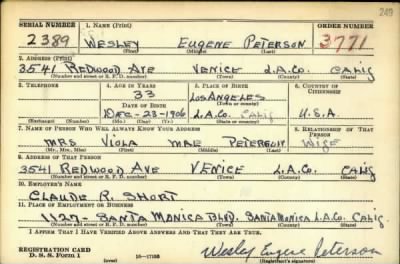 249
SERIAL NUMBER 1. NAME (Print) ORDER NUMBER
2389 WESLEY EUGENE PETERSON 3771
(First) (Middle) (Last)
2. ADDRESS (Print)
3541 REDWOOD AVE VENICE L.A.CO. CALIF
(Number and street or R. F. D. number) (Town) (County) (State)
3. TELEPHONE 4. AGE IN YEARS 5. PLACE OF BIRTH 6. COUNTRY OF CITIZENSHIP
33 LOS ANGELES
DATE OF BIRTH (Town or county)
DEC-23-1906 L.A.CO. CALIF U.S.A.
(Exchange) (Number) (Mo.) (Day) (Yr.) (State or country)
7. NAME OF PERSON WHO WILL ALWAYS KNOW YOUR ADDRESS 8. RELATIONSHIP OF THAT PERSON
MRS VIOLA MAE PETERSON WIFE
(Mr., Mrs., Miss) (First) (Middle) (Last)
9. ADDRESS OF THAT PERSON
3541 REDWOOD AVE VENICE L.A.CO. CALIF
(Number and street or R. F. D. number) (Town) (County) (State)
10. EMPLOYER'S NAME
CLAUDE R. SHORT
11. PLACE OF EMPLOYMENT OR BUSINESS
1127- SANTA MONICA BLVD. SANTA MONICA L.A.CO. CALIF.
(Number and street or R. F. D. number) (Town) (County) (State)
I AFFIRM THAT I HAVE VERIFIED ABOVE ANSWERS AND THAT THEY ARE TRUE.
REGISTRATION CARD
D. S. S. Form 1 (over) 16-17105 Wesley Eugene Peterson
(Registrant's signature)